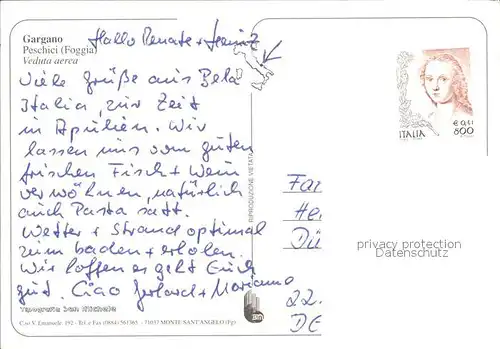 Gargano
Peschici (Foggia)
Veduta aerea
Hallo Renate + Heinz
Viele Grüße aus Bela
Italia, zur Zeit
in Apulien. Wir
lassen uns vom guten
frischen Fisch + Wein
verwöhnen, natürlich
auch Pasta satt.
Wetter + Strand optimal
zum baden + erholen.
Wir hoffen es geht Euch
gut. Ciao Gerhard + Marianne
Tipografia San Michele
C.so V. Emanuele, 192 - Tel. e Fax (0884) 561365 - 71037 MONTE SANT'ANGELO (Fg)
RIPRODUZIONE VIETATA
€ 0,41
ITALIA 800
Fa
He
Dü
22.
DE
privacy protection
Datenschutz